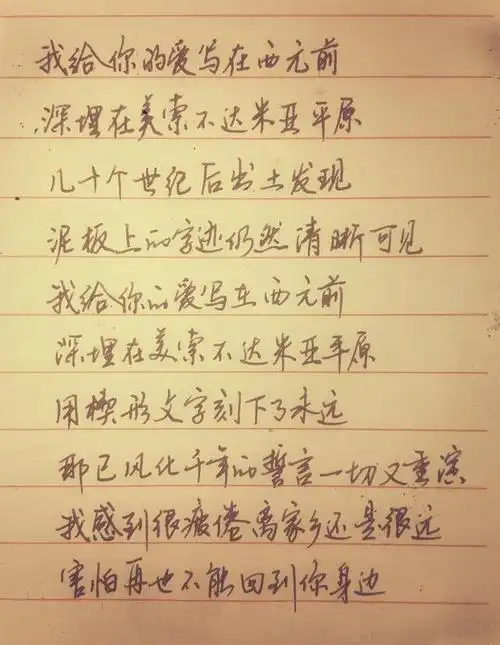 我给你的爱写在西元前
深埋在美索不达米亚平原
几十个世纪后出土发现
泥板上的字迹仍然清晰可见
我给你的爱写在西元前
深埋在美索不达米亚平原
用楔形文字刻下了永远
那已风化千年的誓言一切又重演
我感到很疲倦离家乡还是很远
害怕再也不能回到你身边